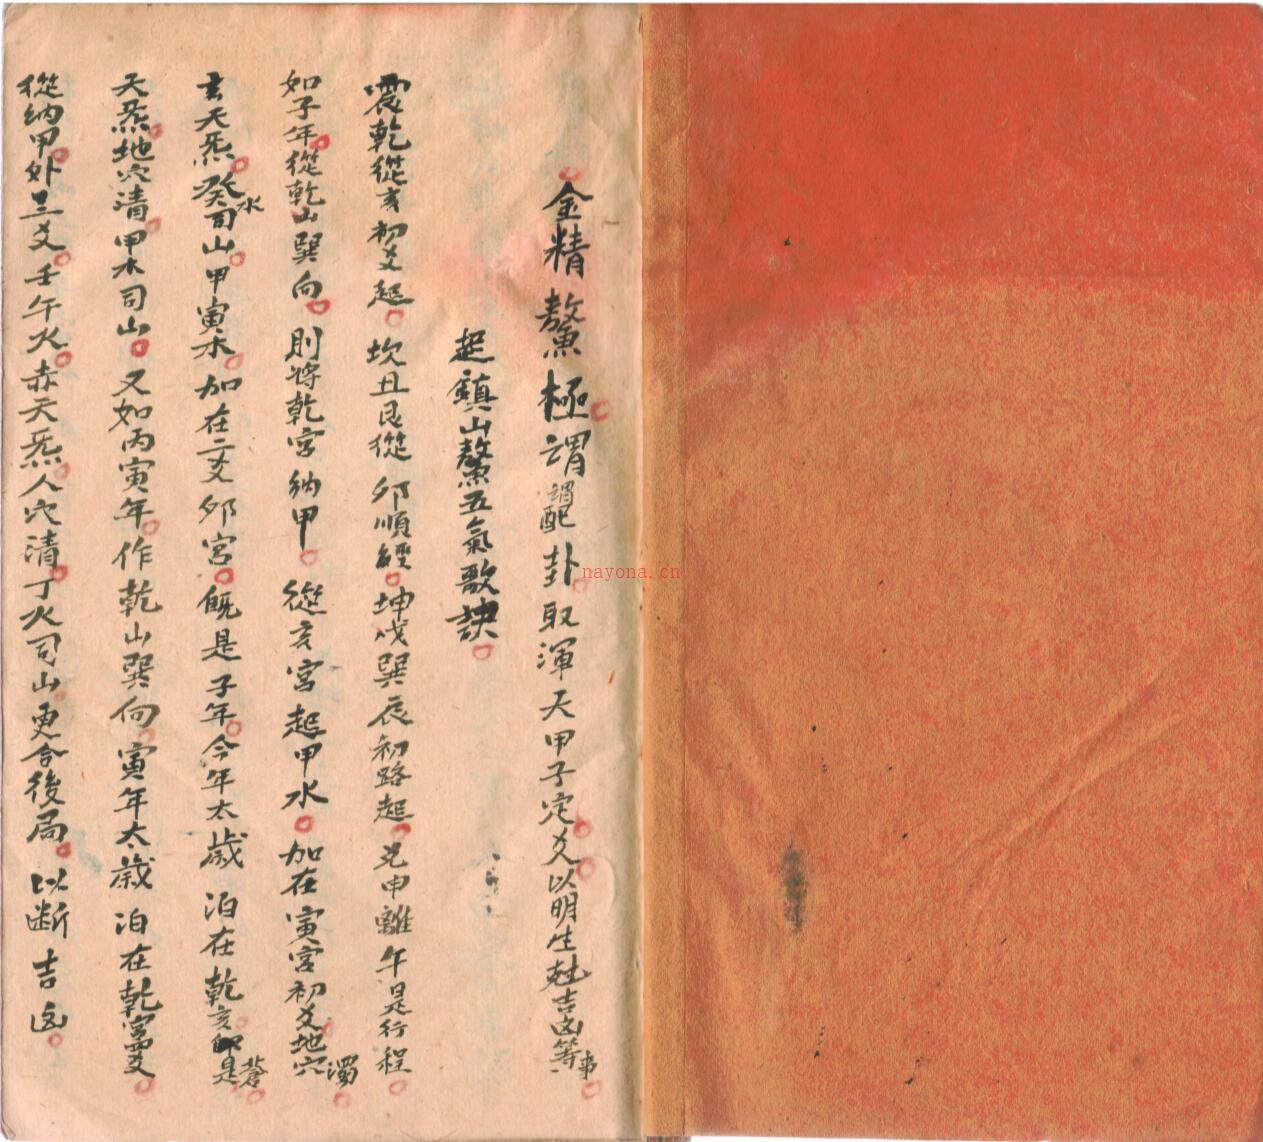 金精鰲極謂謂配卦取渾天甲子定爻以明生尅吉凶等事
起鎮山鰲五氣歌訣
震乾從亥初爻起坎丑艮從夘順經坤戌巽辰初路起兑申離午是行程
如子年從乾山巽向則將乾宮納甲從亥宮起甲水加在寅宮初爻地穴濁
玄天炁癸水司山甲寅木加在二爻夘宮既是子年今年太歲泊在乾亥即是蒼
天炁地穴清甲木司山又如丙寅年作乾山巽向寅年太歲泊在乾宮四爻
從納甲外三爻壬午火赤天炁人穴清丁火司山更合後局以断吉凶
nayona.cn